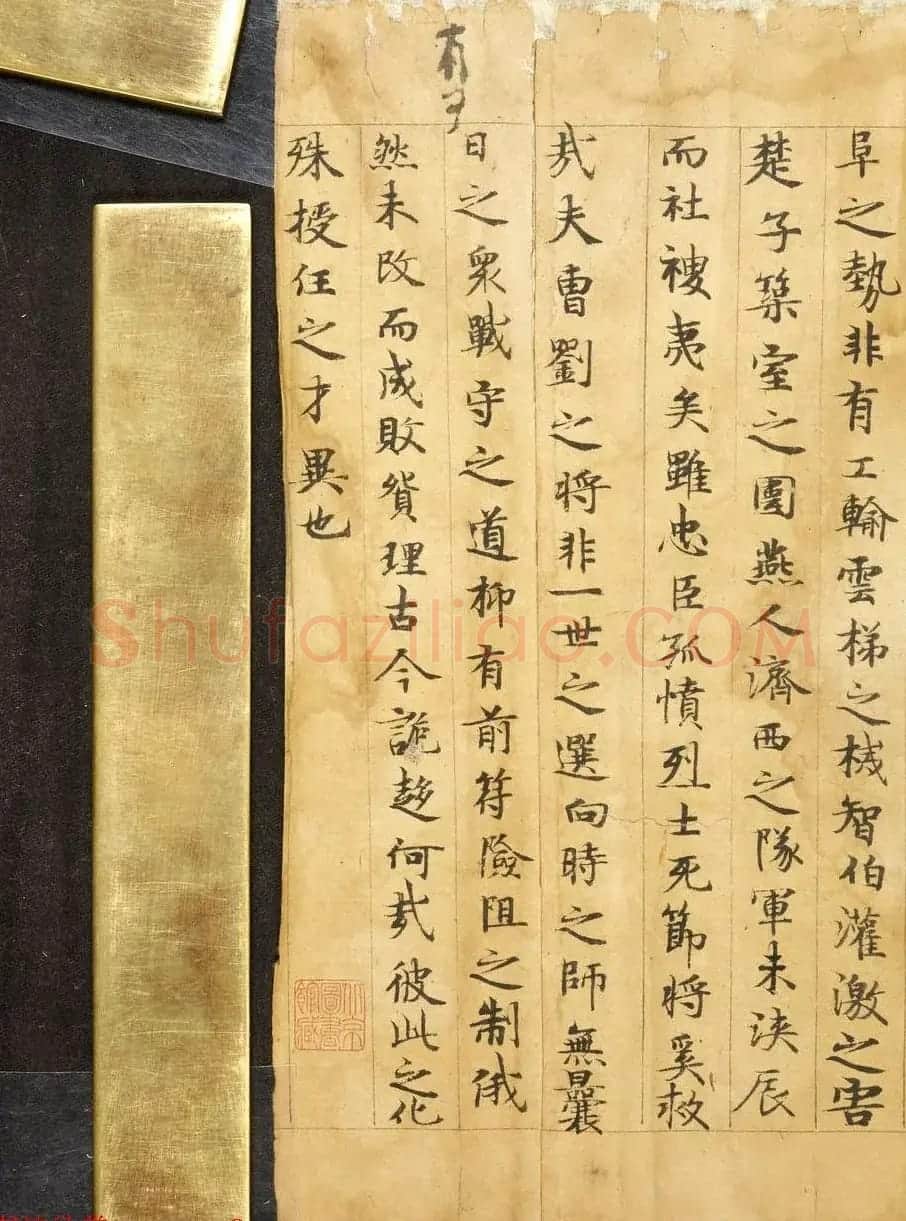 阜之勢非有工輸雲梯之械智伯灌激之害
楚子築室之圍燕人濟西之隊軍未浹辰
而社稷夷矣雖忠臣孤憤烈士死節將奚救
哉夫曹劉之將非一世之選向時之師無曩
日之衆戰守之道抑有前符險阻之制俄
然未改而成敗貿理古今詭趍何哉彼此之化
殊授任之才異也
北京圖書館藏
Shufaziliao.COM